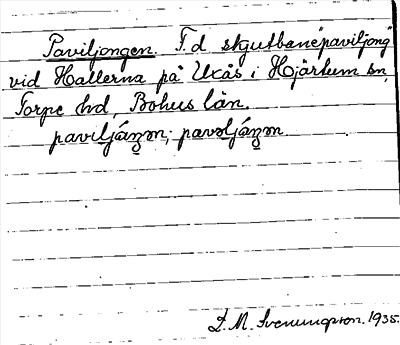 Paviljongen. F.d skjutbane"paviljong"
vid Hallerna på Uxås i Hjärtum sn,
Torpe hd, Bohus län.
paviljáŋən; pavəljáŋən
L. M. Svenungsson. 1935.